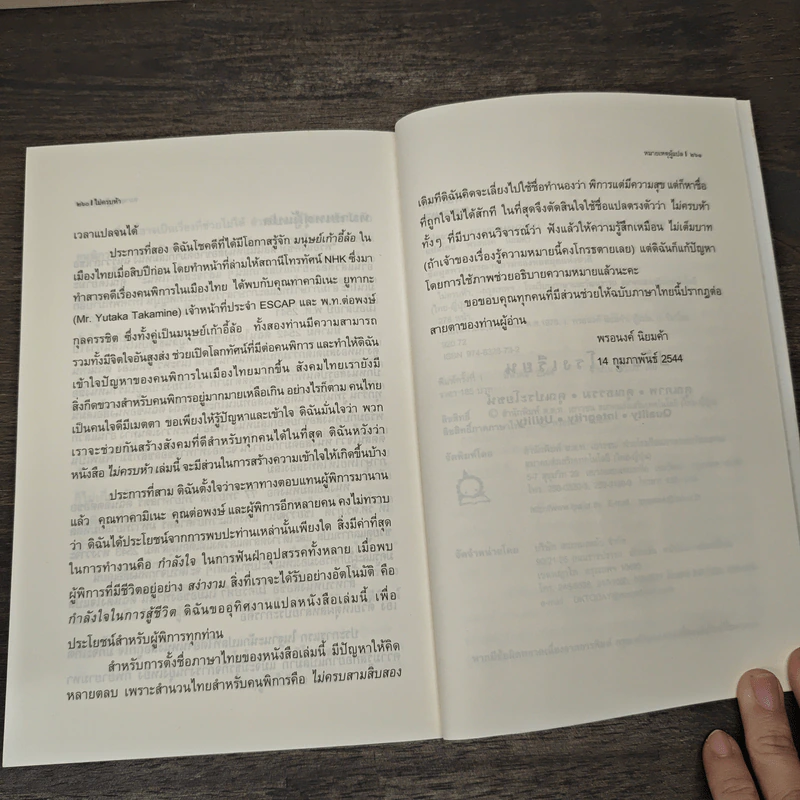 ๒๖๐ I ไม่ครบห้า
เวลาแปลจนได้
ประการที่สอง ดิฉันโชคดีที่ได้มีโอกาสรู้จัก มนุษย์เก้าอี้ล้อ ใน
เมืองไทยเมื่อสิบปีก่อน โดยทำหน้าที่ล่ามให้สถานีโทรทัศน์ NHK ซึ่งมา
ทำสารคดีเรื่องคนพิการในเมืองไทย ได้พบกับคุณทาคามิเนะ ยูทากะ
(Mr. Yutaka Takamine) เจ้าหน้าที่ประจำ ESCAP และ พ.ท.ต่อพงษ์
กุลครรชิต ซึ่งทั้งคู่เป็นมนุษย์เก้าอี้ล้อ ทั้งสองท่านมีความสามารถ
รวมทั้งมีจิตใจอันสูงส่ง ช่วยเปิดโลกทัศน์ที่มีต่อคนพิการ และทำให้ดิฉัน
เข้าใจปัญหาของคนพิการในเมืองไทยมากขึ้น สังคมไทยเรายังมี
สิ่งกีดขวางสำหรับคนพิการอยู่มากมายเหลือเกิน อย่างไรก็ตาม คนไทย
เป็นคนใจดีมีเมตตา ขอเพียงให้รู้ปัญหาและเข้าใจ ดิฉันมั่นใจว่า พวก
เราจะช่วยกันสร้างสังคมที่ดีสำหรับทุกคนได้ในที่สุด ดิฉันหวังว่า
หนังสือ ไม่ครบห้า เล่มนี้ จะมีส่วนในการสร้างความเข้าใจให้เกิดขึ้นบ้าง
ประการที่สาม ดิฉันตั้งใจว่าจะหาทางตอบแทนผู้พิการมานาน
แล้ว คุณทาคามิเนะ คุณต่อพงษ์ และผู้พิการอีกหลายคน คงไม่ทราบ
ว่า ดิฉันได้ประโยชน์จากการพบปะท่านเหล่านั้นเพียงใด สิ่งมีค่าที่สุด
ในการทำงานคือ กำลังใจ ในการฟันฝ่าอุปสรรคทั้งหลาย เมื่อพบ
ผู้พิการที่มีชีวิตอยู่อย่าง สง่างาม สิ่งที่เราจะได้รับอย่างอัตโนมัติ คือ
กำลังใจในการสู้ชีวิต ดิฉันขออุทิศงานแปลหนังสือเล่มนี้ เพื่อ
ประโยชน์สำหรับผู้พิการทุกท่าน
สำหรับการตั้งชื่อภาษาไทยของหนังสือเล่มนี้ มีปัญหาให้คิด
หลายตลบ เพราะสำนวนไทยสำหรับคนพิการคือ ไม่ครบสามสิบสอง
หมายเหตุผู้แปล I ๒๖๑
เดิมทีดิฉันคิดจะเลี่ยงไปใช้ชื่อทำนองว่า พิการแต่มีความสุข แต่ก็หาชื่อ
ที่ถูกใจไม่ได้สักที ในที่สุดจึงตัดสินใจใช้ชื่อแปลตรงตัวว่า ไม่ครบห้า
ทั้งๆ ที่มีบางคนวิจารณ์ว่า ฟังแล้วให้ความรู้สึกเหมือน ไม่เต็มบาท
(ถ้าเจ้าของเรื่องรู้ความหมายนี้คงโกรธตายเลย) แต่ดิฉันก็แก้ปัญหา
โดยการใช้ภาพช่วยอธิบายความหมายแล้วนะคะ
ขอขอบคุณทุกคนที่มีส่วนช่วยให้ฉบับภาษาไทยนี้ปรากฏต่อ
สายตาของท่านผู้อ่าน
พรอนงค์ นิยมค้า
14 กุมภาพันธ์ 2544